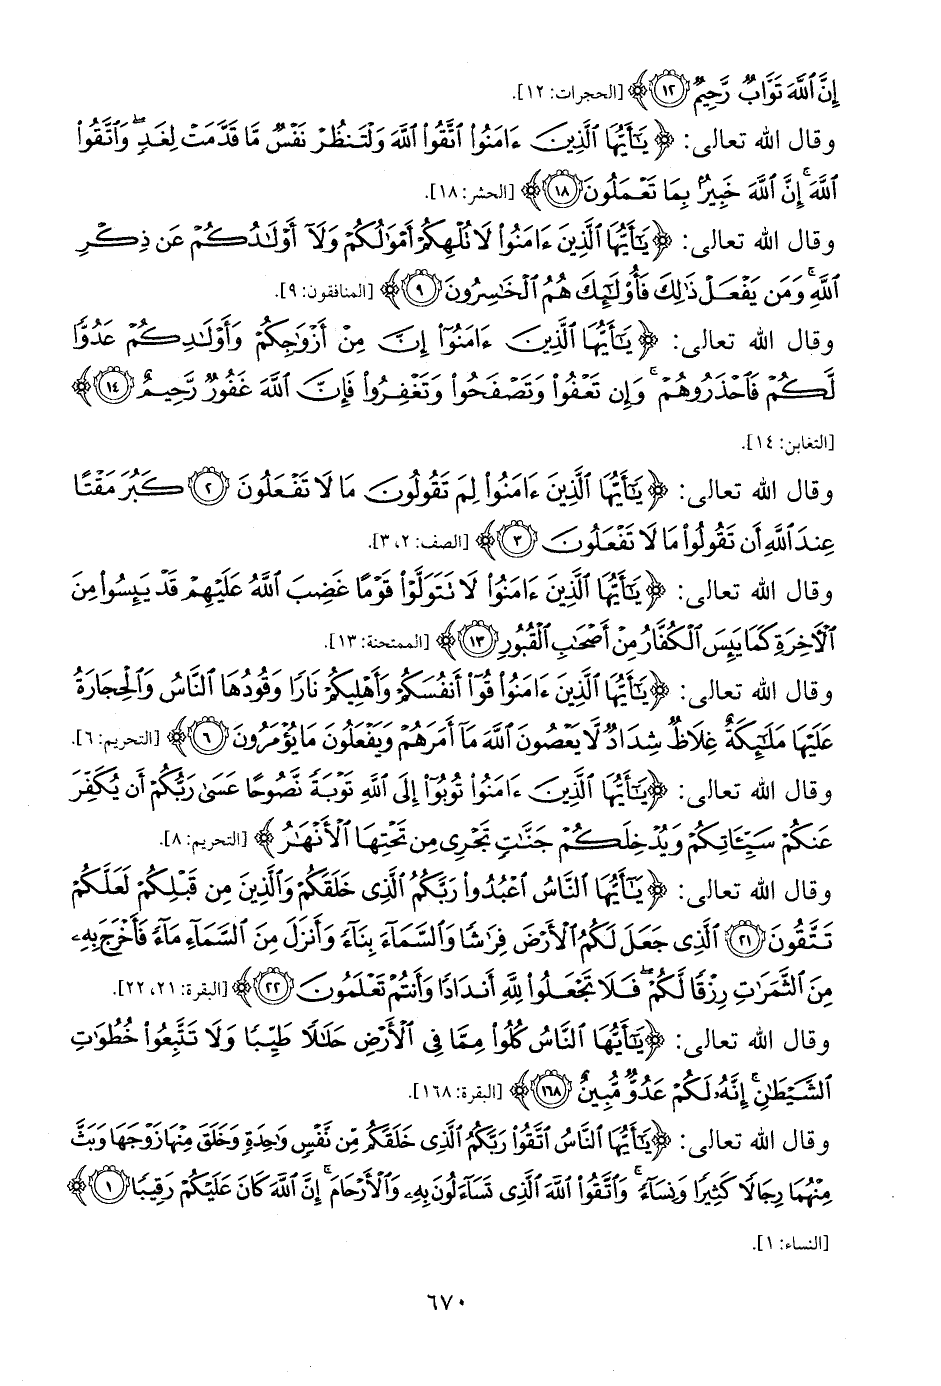 إِنَّ ٱللَّهَ تَوَّابٌ رَّحِيمٌ ﴿١٢﴾ [الحجرات: ١٢].
وقال الله تعالى: ﴿ يَٰٓأَيُّهَا ٱلَّذِينَ ءَامَنُوا۟ ٱتَّقُوا۟ ٱللَّهَ وَلْتَنظُرْ نَفْسٌ مَّا قَدَّمَتْ لِغَدٍ ۖ وَٱتَّقُوا۟
ٱللَّهَ ۚ إِنَّ ٱللَّهَ خَبِيرٌۢ بِمَا تَعْمَلُونَ ١٨ ﴾ [الحشر: ١٨].
وقال الله تعالى: ﴿ يَٰٓأَيُّهَا ٱلَّذِينَ ءَامَنُوا۟ لَا تُلْهِكُمْ أَمْوَٰلُكُمْ وَلَآ أَوْلَٰدُكُمْ عَن ذِكْرِ
ٱللَّهِ ۚ وَمَن يَفْعَلْ ذَٰلِكَ فَأُو۟لَٰٓئِكَ هُمُ ٱلْخَٰسِرُونَ ٩ ﴾ [المنافقون: ٩].
وقال الله تعالى: ﴿ يَٰٓأَيُّهَا ٱلَّذِينَ ءَامَنُوٓا۟ إِنَّ مِنْ أَزْوَٰجِكُمْ وَأَوْلَٰدِكُمْ عَدُوًّا
لَّكُمْ فَٱحْذَرُوهُمْ ۚ وَإِن تَعْفُوا۟ وَتَصْفَحُوا۟ وَتَغْفِرُوا۟ فَإِنَّ ٱللَّهَ غَفُورٌ رَّحِيمٌ ١٤ ﴾
[التغابن: ١٤].
وقال الله تعالى: ﴿ يَٰٓأَيُّهَا ٱلَّذِينَ ءَامَنُوا۟ لِمَ تَقُولُونَ مَا لَا تَفْعَلُونَ ٢ كَبُرَ مَقْتًا
عِندَ ٱللَّهِ أَن تَقُولُوا۟ مَا لَا تَفْعَلُونَ ٣ ﴾ [الصف: ٢، ٣].
وقال الله تعالى: ﴿ يَٰٓأَيُّهَا ٱلَّذِينَ ءَامَنُوا۟ لَا تَتَوَلَّوْا۟ قَوْمًا غَضِبَ ٱللَّهُ عَلَيْهِمْ قَدْ يَئِسُوا۟ مِنَ
ٱلْءَاخِرَةِ كَمَا يَئِسَ ٱلْكُفَّارُ مِنْ أَصْحَٰبِ ٱلْقُبُورِ ١٣ ﴾ [الممتحنة: ١٣].
وقال الله تعالى: ﴿ يَٰٓأَيُّهَا ٱلَّذِينَ ءَامَنُوا۟ قُوٓا۟ أَنفُسَكُمْ وَأَهْلِيكُمْ نَارًا وَقُودُهَا ٱلنَّاسُ وَٱلْحِجَارَةُ
عَلَيْهَا مَلَٰٓئِكَةٌ غِلَاظٌ شِدَادٌ لَّا يَعْصُونَ ٱللَّهَ مَآ أَمَرَهُمْ وَيَفْعَلُونَ مَا يُؤْمَرُونَ ٦ ﴾ [التحريم: ٦].
وقال الله تعالى: ﴿ يَٰٓأَيُّهَا ٱلَّذِينَ ءَامَنُوا۟ تُوبُوٓا۟ إِلَى ٱللَّهِ تَوْبَةً نَّصُوحًا عَسَىٰ رَبُّكُمْ أَن يُكَفِّرَ
عَنكُمْ سَيِّـَٔاتِكُمْ وَيُدْخِلَكُمْ جَنَّٰتٍ تَجْرِى مِن تَحْتِهَا ٱلْأَنْهَٰرُ ﴾ [التحريم: ٨].
وقال الله تعالى: ﴿ يَٰٓأَيُّهَا ٱلنَّاسُ ٱعْبُدُوا۟ رَبَّكُمُ ٱلَّذِى خَلَقَكُمْ وَٱلَّذِينَ مِن قَبْلِكُمْ لَعَلَّكُمْ
تَتَّقُونَ ٢١ ٱلَّذِى جَعَلَ لَكُمُ ٱلْأَرْضَ فِرَٰشًا وَٱلسَّمَآءَ بِنَآءً وَأَنزَلَ مِنَ ٱلسَّمَآءِ مَآءً فَأَخْرَجَ بِهِۦ
مِنَ ٱلثَّمَرَٰتِ رِزْقًا لَّكُمْ ۖ فَلَا تَجْعَلُوا۟ لِلَّهِ أَندَادًا وَأَنتُمْ تَعْلَمُونَ ٢٢ ﴾ [البقرة: ٢١، ٢٢].
وقال الله تعالى: ﴿ يَٰٓأَيُّهَا ٱلنَّاسُ كُلُوا۟ مِمَّا فِى ٱلْأَرْضِ حَلَٰلًا طَيِّبًا وَلَا تَتَّبِعُوا۟ خُطُوَٰتِ
ٱلشَّيْطَٰنِ ۚ إِنَّهُۥ لَكُمْ عَدُوٌّ مُّبِينٌ ١٦٨ ﴾ [البقرة: ١٦٨].
وقال الله تعالى: ﴿ يَٰٓأَيُّهَا ٱلنَّاسُ ٱتَّقُوا۟ رَبَّكُمُ ٱلَّذِى خَلَقَكُم مِّن نَّفْسٍ وَٰحِدَةٍ وَخَلَقَ مِنْهَا زَوْجَهَا وَبَثَّ
مِنْهُمَا رِجَالًا كَثِيرًا وَنِسَآءً ۚ وَٱتَّقُوا۟ ٱللَّهَ ٱلَّذِى تَسَآءَلُونَ بِهِۦ وَٱلْأَرْحَامَ ۚ إِنَّ ٱللَّهَ كَانَ عَلَيْكُمْ رَقِيبًا ١ ﴾
[النساء: ١].
٦٧٠